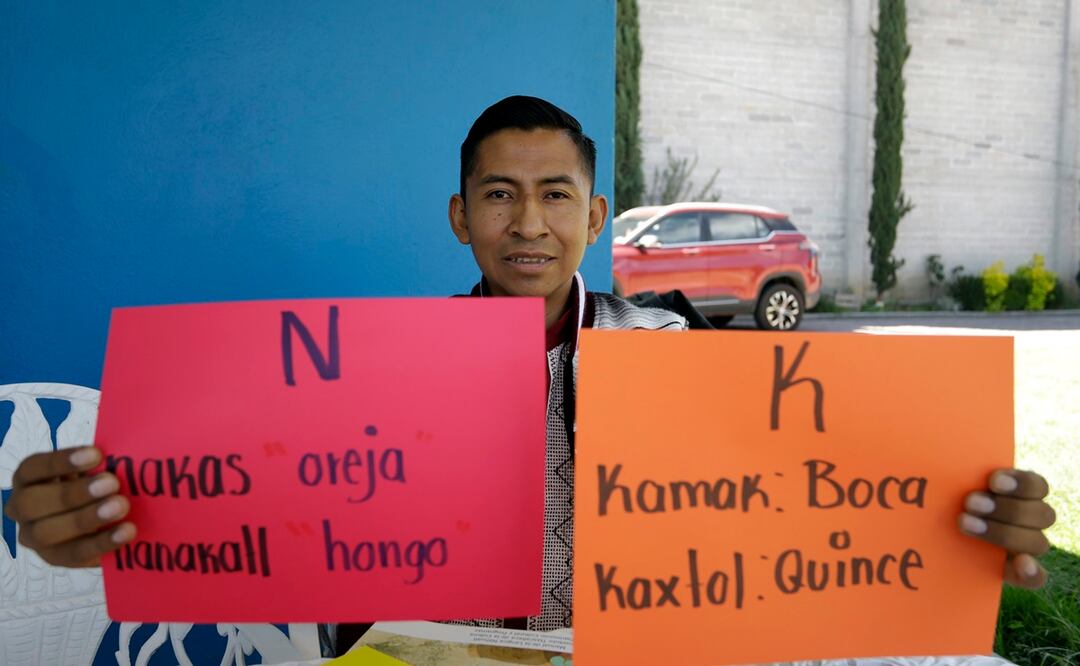 N
nakas "oreja"
nanakatl "hongo"
K
Kamak: Boca
Kaxtol: Quince